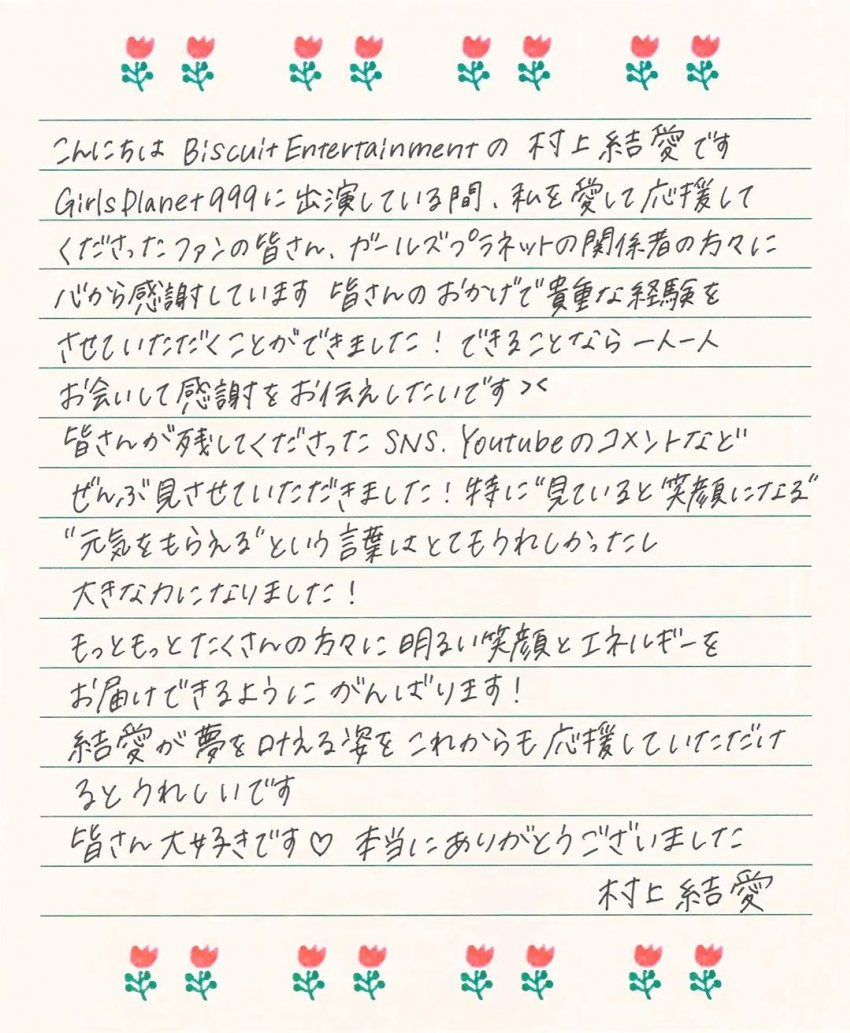 こんにちは Biscuit Entertainmentの 村上 結愛です
Girls planet 999に 出演している間、私を愛して応援して
くださったファンの皆さん、ガールズプラネットの関係者の方々に
心から感謝しています 皆さんのおかげで貴重な経験を
させていただくことができました！ できることなら一人一人
お会いして感謝をお伝えしたいです><
皆さんが残してくださった SNS. Youtubeのコメントなど
ぜんぶ見させていただきました！特に"見ていると笑顔になる"
"元気をもらえる"という言葉はとてもうれしかったし
大きな力になりました！
もっともっとたくさんの方々に 明るい笑顔とエネルギーを
お届けできるように がんばります！
結愛が夢を叶える姿を これからも応援していただけ
ると うれしいです
皆さん大好きです♡ 本当にありがとうございました
村上 結愛